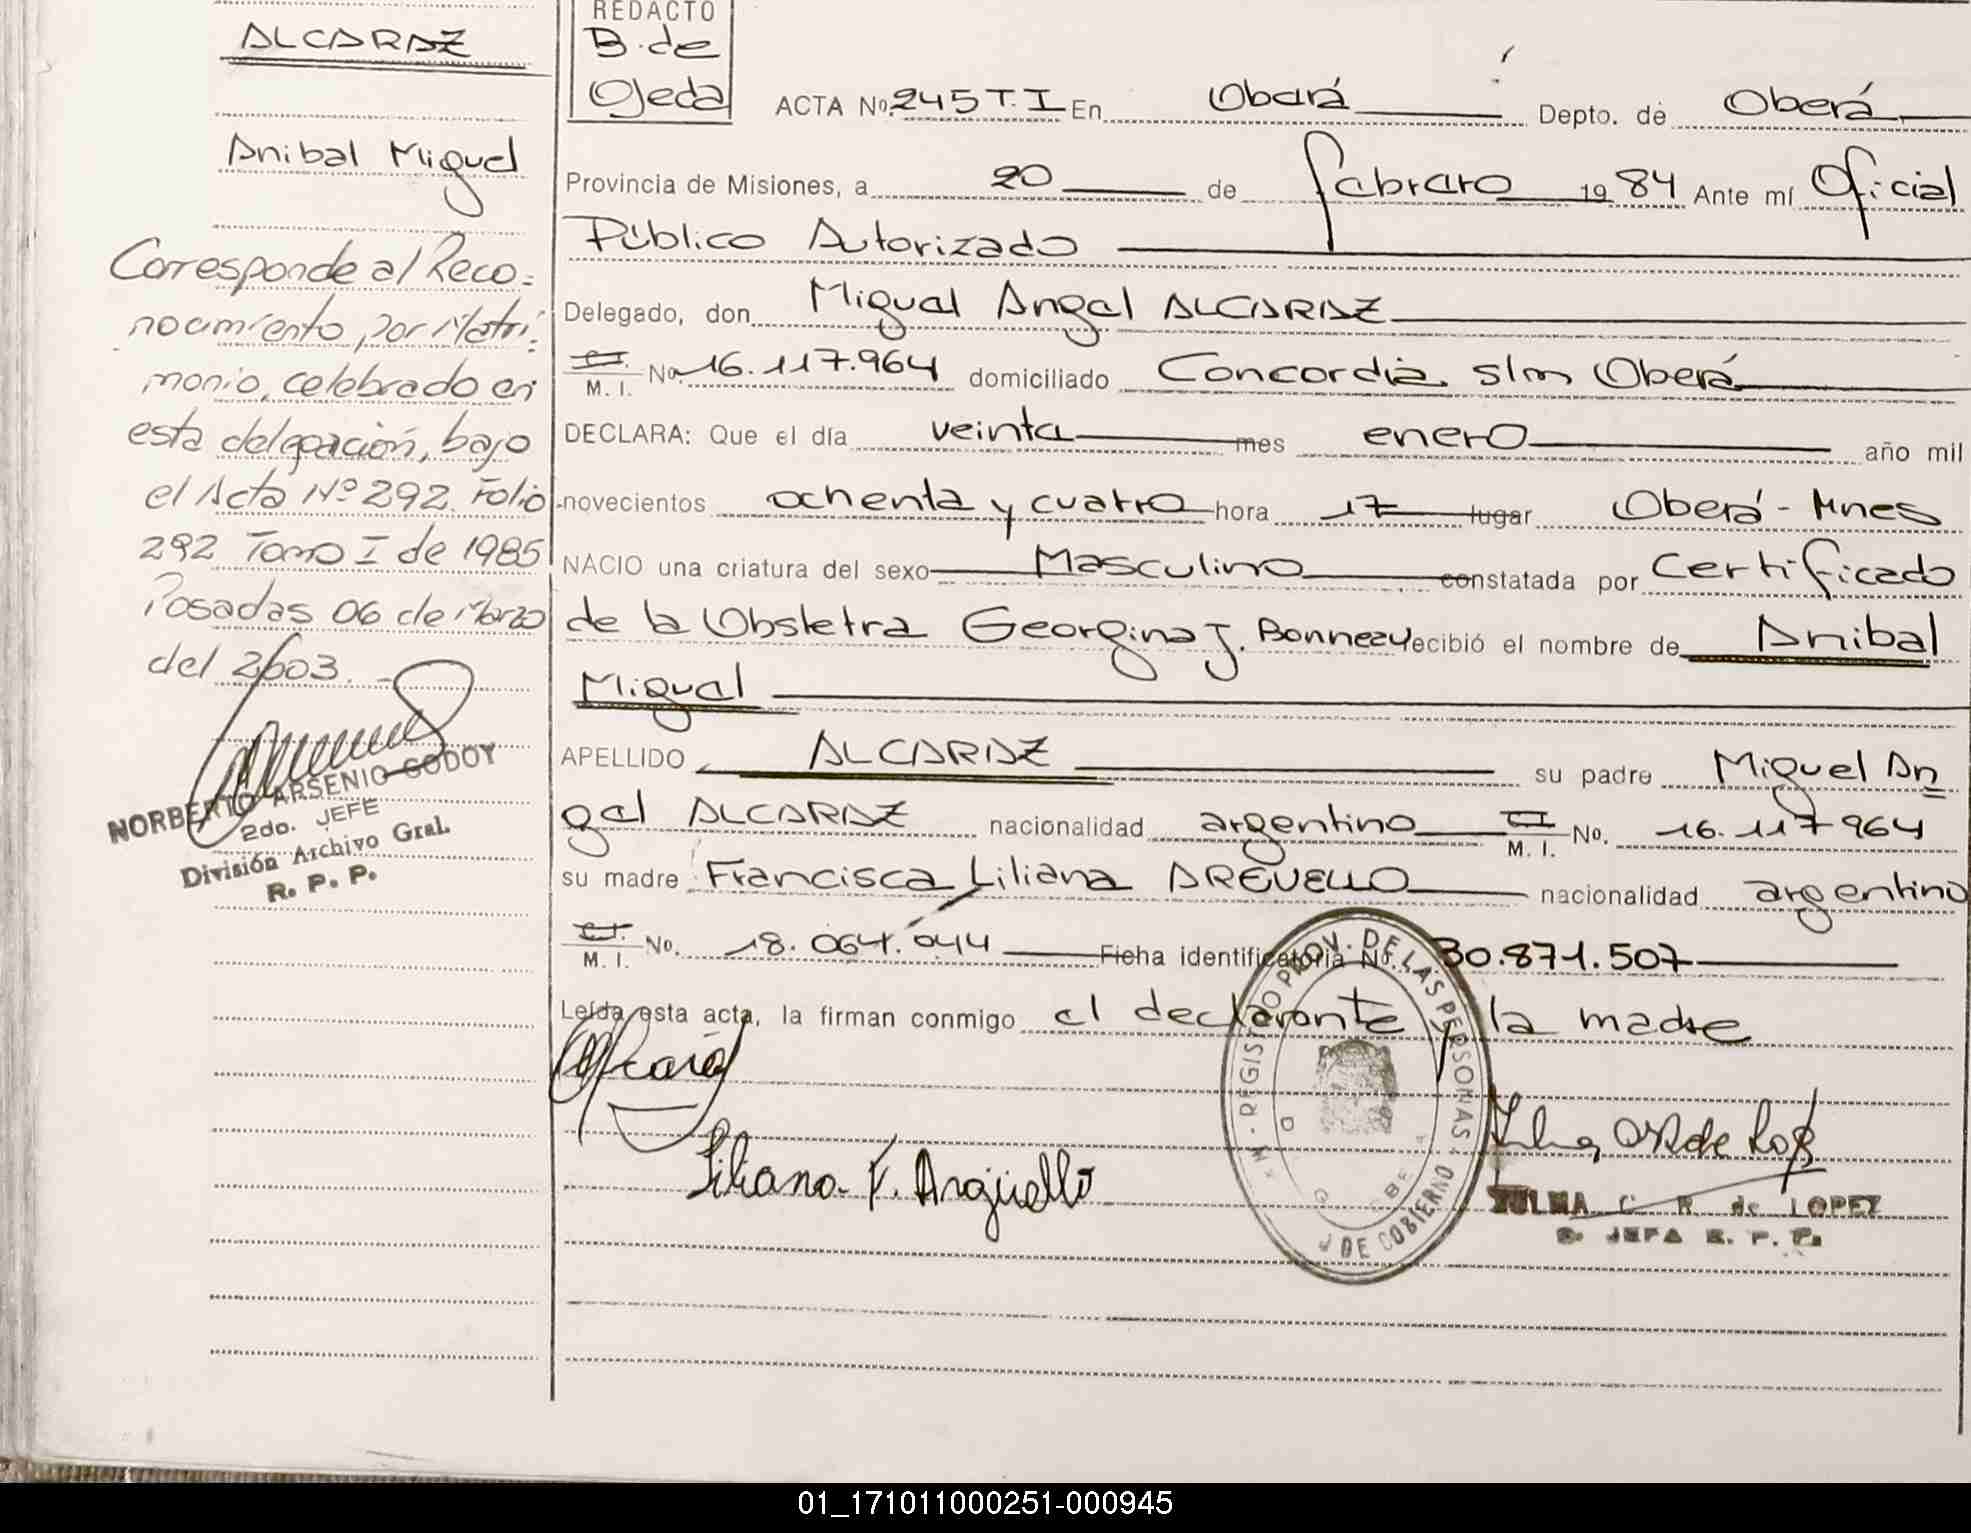 ALCARAZ
Anibal Miguel
Corresponde al Reco=
nocimiento, por Matri=
monio, celebrado en
esta delegación, bajo
el Acta Nº 292. Folio
292 Tomo I de 1985
Posadas 06 de Marzo
del 2003.-
NORBERTO ARSENIO GODOY
2do. JEFE
División Archivo Gral.
R. P. P.
REDACTO
B. de
Ojeda
ACTA No. 245 T. I En Oberá Depto. de Oberá
Provincia de Misiones, a 20 de febrero 1984 Ante mí Oficial
Público Autorizado
Delegado, don Miguel Angel ALCARAZ
C.I. M. I. No. 16.117.964 domiciliado Concordia s/n Oberá
DECLARA: Que el día veinte mes enero año mil
novecientos ochenta y cuatro hora 17 lugar Oberá - Mnes
NACIO una criatura del sexo Masculino constatada por Certificado
de la Obstetra Georgina J. Bonneau recibió el nombre de Anibal
Miguel
APELLIDO ALCARAZ su padre Miguel An
gel ALCARAZ nacionalidad argentino C.I. M. I. No. 16.117 964
su madre Francisca Liliana AREUELLO nacionalidad argentino
C.I. M. I. No. 18.064.044 Ficha identificatoria No. 30.871.507
Leída esta acta, la firman conmigo el declarante y la madre
Liliana F. Argüello
REGISTRO PROV. DE LAS PERSONAS
DE GOBIERNO
ZULMA C. R. de LOPEZ
S. JEFA R. P. P.
01_171011000251-000945